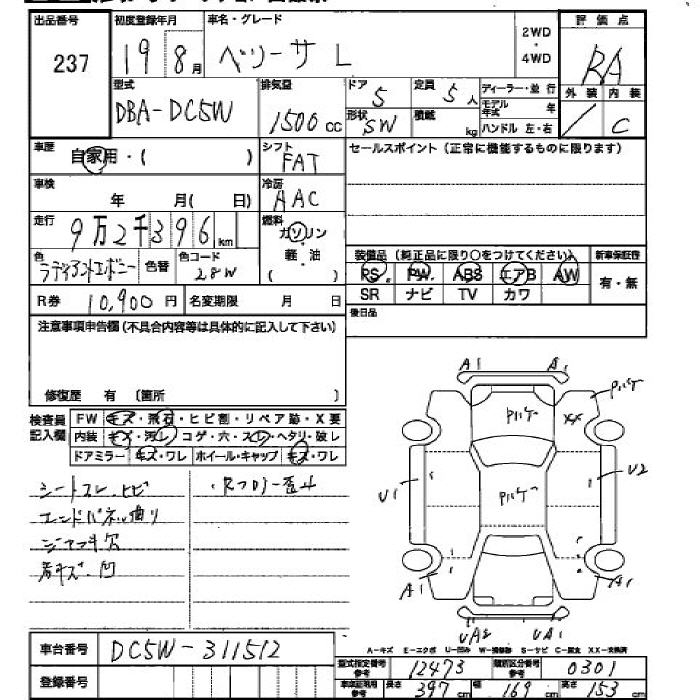 出品番号 初度登録年月 車名・グレード 2WD・4WD 評価点
237 19 8月 ベリーサ L RA
型式 排気量 ドア 定員 ディーラー・並行 外装 内装
DBA-DC5W 1500cc 5 5人 モデル年式 年 / C
形状 積載 ハンドル 左・右
SW kg
車歴 自家用・( ) シフト セールスポイント(正常に機能するものに限ります)
FAT
車検 年 月( 日) 冷房
AAC
走行 9万2千396km 燃料
ガソリン・軽・油
( )
色 色替 色コード 装備品(純正品に限り○をつけてください) 新車保証書
ラディアントエボニー 28W PS PW ABS エアB AW 有・無
R券 10,900円 名変期限 月 日 SR ナビ TV カワ
注意事項申告欄(不具合内容等は具体的に記入して下さい) 後日品
修復歴 有 〔箇所 〕
検査員記入欄 FW キズ・飛石・ヒビ割・リペア跡・X要
内装 キズ・汚レ・コゲ・穴・スレ・ヘタリ・破レ
ドアミラー キズ・ワレ ホイール・キャップ キズ・ワレ
A1 A1
Pハゲ Pハゲ XX
U1 Pハゲ U2
A1 A1
UA2 UA1
シートスレ、ヒビ ・Rフロアー歪ミ
エンドパネル曲り
ジャッキ欠
A-キズ E-エクボ U-凹み W-補修跡 S-サビ C-腐食 XX-交換済
車台番号 DC5W-311512
型式指定番号 参考 12473 類別区分番号 参考 0301
登録番号 参考 長さ 397cm 幅 169cm 高さ 153cm